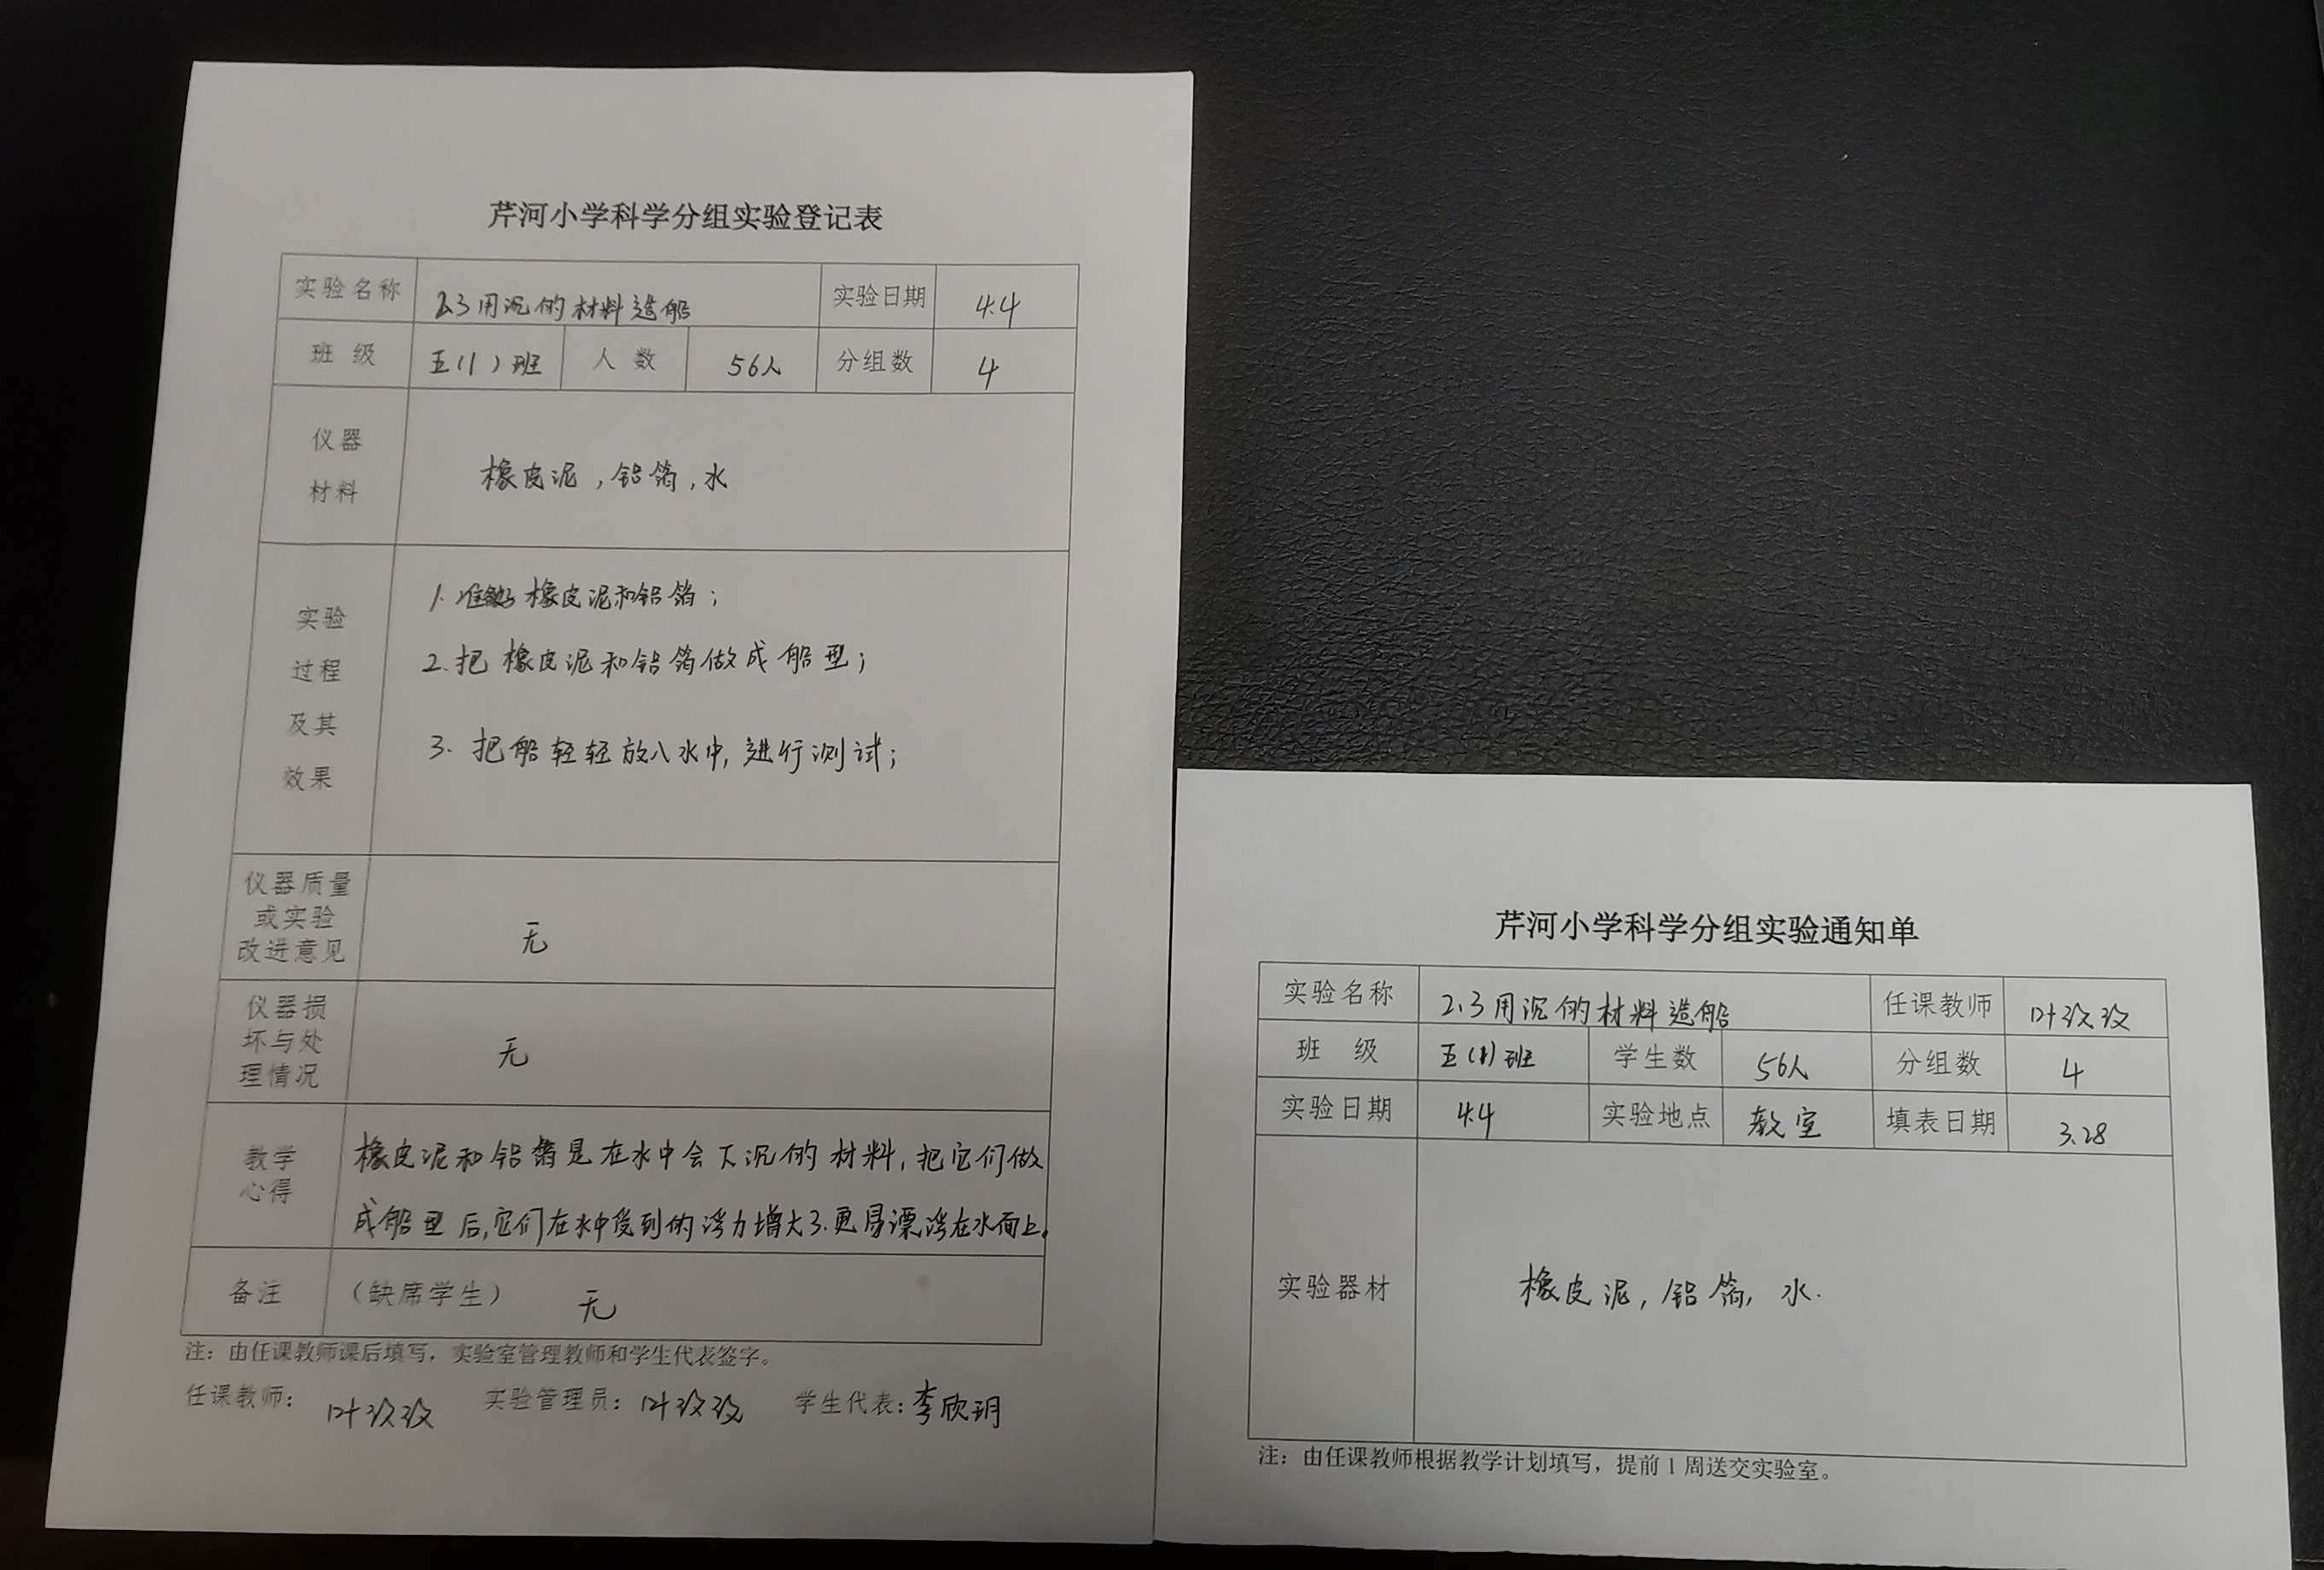 芹河小学科学分组实验登记表
实验名称 2.3用沉的材料造船 实验日期 4.4
班 级 五(1)班 人 数 56人 分组数 4
仪器
材料
橡皮泥,铝箔,水
实验
过程
及其
效果
1.准备好橡皮泥和铝箔;
2.把橡皮泥和铝箔做成船型;
3.把船轻轻放入水中,进行测试;
仪器质量
或实验
改进意见
无
仪器损
坏与处
理情况
无
教学
心得
橡皮泥和铝箔是在水中会下沉的材料,把它们做
成船型后,它们在水中受到的浮力增大了.更易漂浮在水面上.
备注 (缺席学生) 无
注:由任课教师课后填写,实验室管理教师和学生代表签字。
任课教师: 叶玟玟 实验管理员: 叶玟玟 学生代表: 李欣玥
芹河小学科学分组实验通知单
实验名称 2.3用沉的材料造船 任课教师 叶玟玟
班 级 五(1)班 学生数 56人 分组数 4
实验日期 4.4 实验地点 教室 填表日期 3.28
实验器材 橡皮泥,铝箔,水.
注:由任课教师根据教学计划填写,提前1周送交实验室。